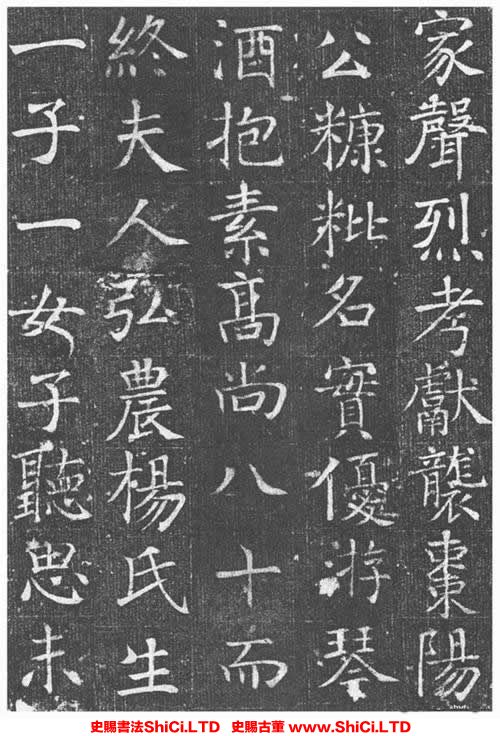 家聲烈考獻襲棗陽
公糠粃名實優游琴
酒抱素髙尚八十而
終夫人弘農楊氏生
一子一女子聽思未
史賜書法ShiCi.LTD 史賜古董 www.ShiCi.LTD